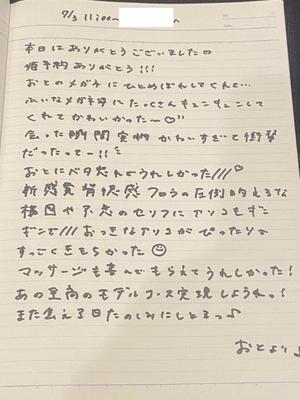 7/3 11:00〜
本日はありがとうございました♡
姫予約ありがとう!!!
おとのメガネにひとめぼれしてくれて…
ふいなメガネ姿にたっくさんキュンキュンして
くれてかわいかった〜♡
会った瞬間実物かわいすぎて衝撃
だったって−!!
おとにベタ惚れでうれしかった///♡
新感覚 フロラの圧倒的えろな
構図や不意のセリフにアソコもギン
ギンで/// おっきなアソコがぴったりで
すっごくきもちかった☺
マッサージも喜んでもらえてうれしかった!
あの星高のモデルコース実現しようねっ!
また会える日たのしみにしとるっ♪
おとより♪